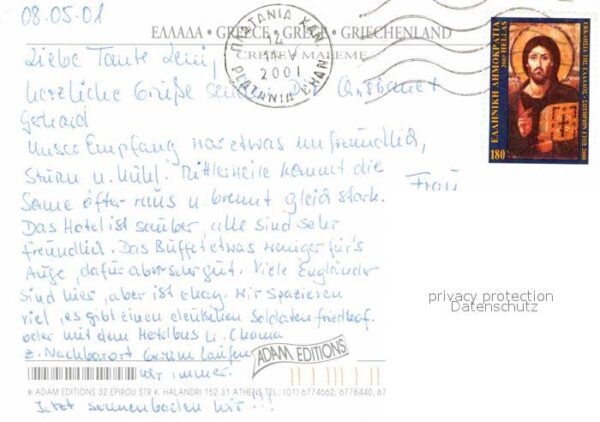 08.05.01
ΕΛΛΑΔΑ • GREECE • GRÈCE • GRIECHENLAND
CRETE MALEME
ΠΛΑΤΑΝΙΑ ΧΑΝ
12
2001
PLATANIA CHAN
Liebe Tante Leni,
herzliche Grüße
Gerhard
Unser Empfang war etwas unfreundlich,
Sturm u. kühl. Mittlerweile kommt die
Sonne öfter raus u. brennt gleich stark.
Das Hotel ist sauber, alle sind sehr
freundlich. Das Büffet etwas weniger für's
Auge, dafür aber sehr gut. Viele Engländer
sind hier, aber ist okay. Wir spazieren
viel, es gibt einen deutschen Soldatenfriedhof.
oder mit dem Hotelbus i. Chania
z. Nachbarort laufen
wir immer.
Jetzt sonnenbaden wir!!!
Frau
ΕΛΛΗΝΙΚΗ ΔΗΜΟΚΡΑΤΙΑ
HELLAS
180
privacy protection
Datenschutz
ADAM EDITIONS
® ADAM EDITIONS 32 EPIROU STR K. HALANDRI 152 31 ATHENS TEL.: (01) 6774662, 6778440, 67